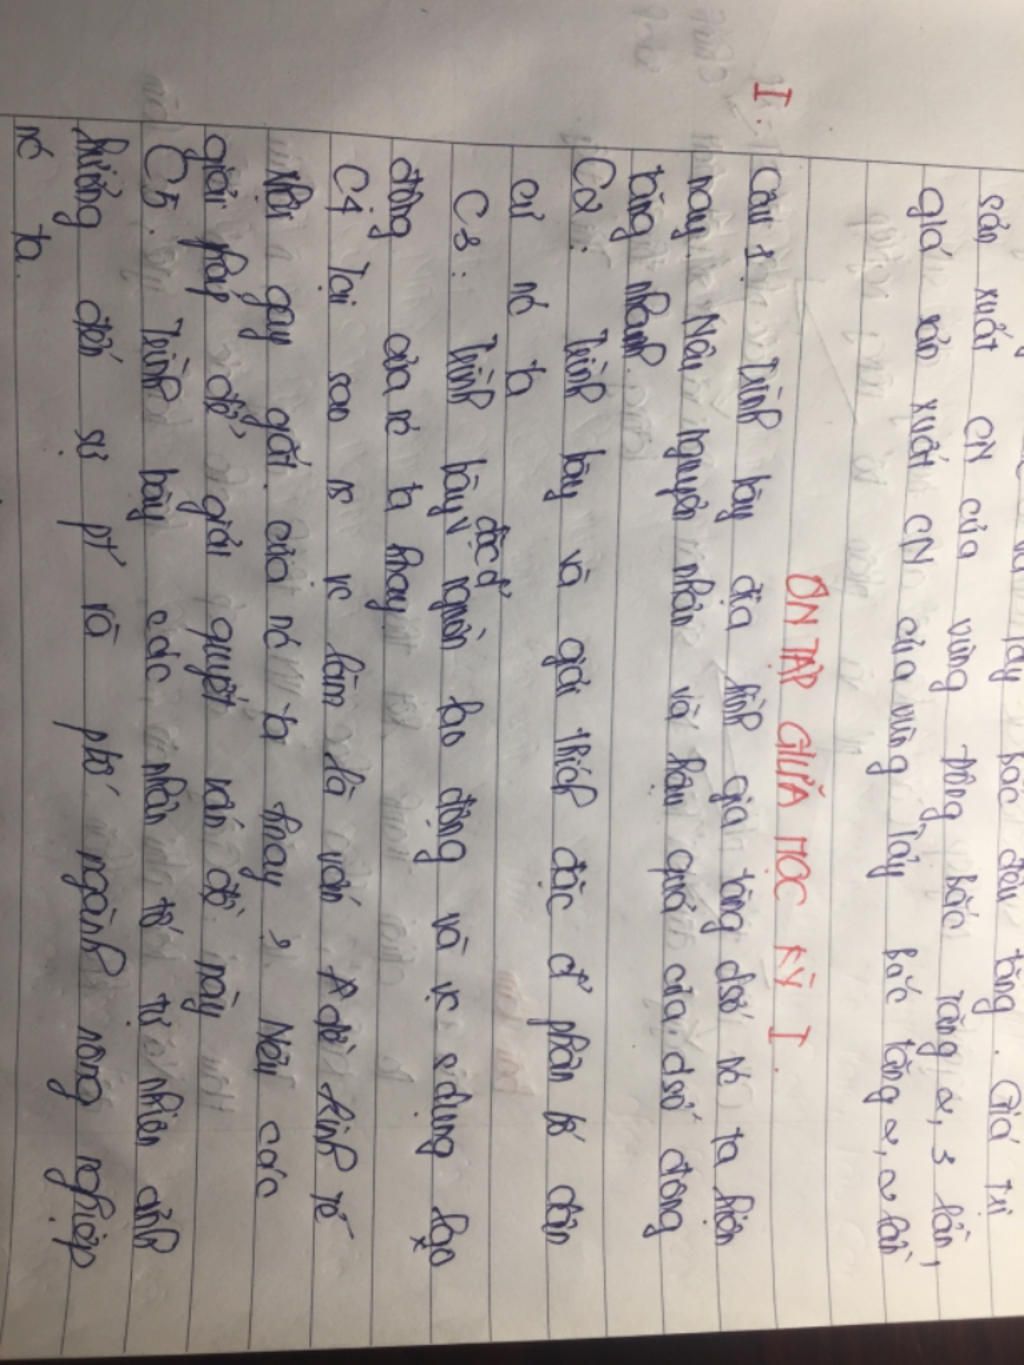 sản xuất CN của vùng Đông Bắc tăng 2,3 lần,
giá sản xuất CN của vùng Tây Bắc tăng 2,2 lần
ÔN TẬP GIỮA HỌC KỲ I.
I.
Câu 1: Trình bày địa hình gia tăng dsố nc ta hiện
nay. Nêu nguyên nhân và hậu quả của dsố đông
tăng nhanh.
C2: Trình bày và giải thích đặc đ' phân bố dân
cư nc ta
C3: Trình bày đặc đ' nguồn lao động và vc sdụng lao
động của nc ta hnay
C4 Tại sao vc làm là vấn đề kinh tế
xhội gay gắt của nc ta hnay? Nêu các
giải pháp để giải quyết vấn đề này
C5. Trình bày các nhân tố tự nhiên ảnh
hưởng đến sự pt và pbố ngành nông nghiệp
nc ta.